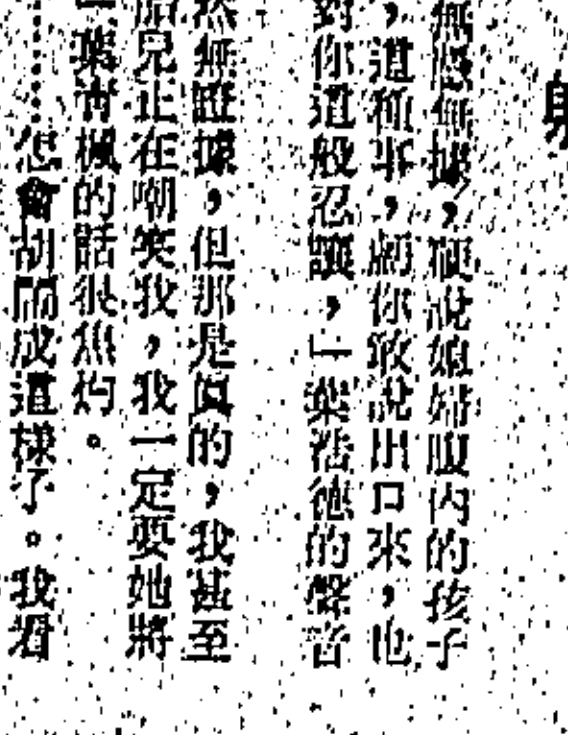 無憑無據，硬說媳婦腹內的孩子
，這種事，虧你敢說出口來，也
對你這般忍讓，」葉浩德的聲音
然無證據，但那是真的，我甚至
胎兒正在嘲笑我，我一定要她將
葉青楓的話很焦灼。
⋯⋯怎會胡鬧成這樣了。我看